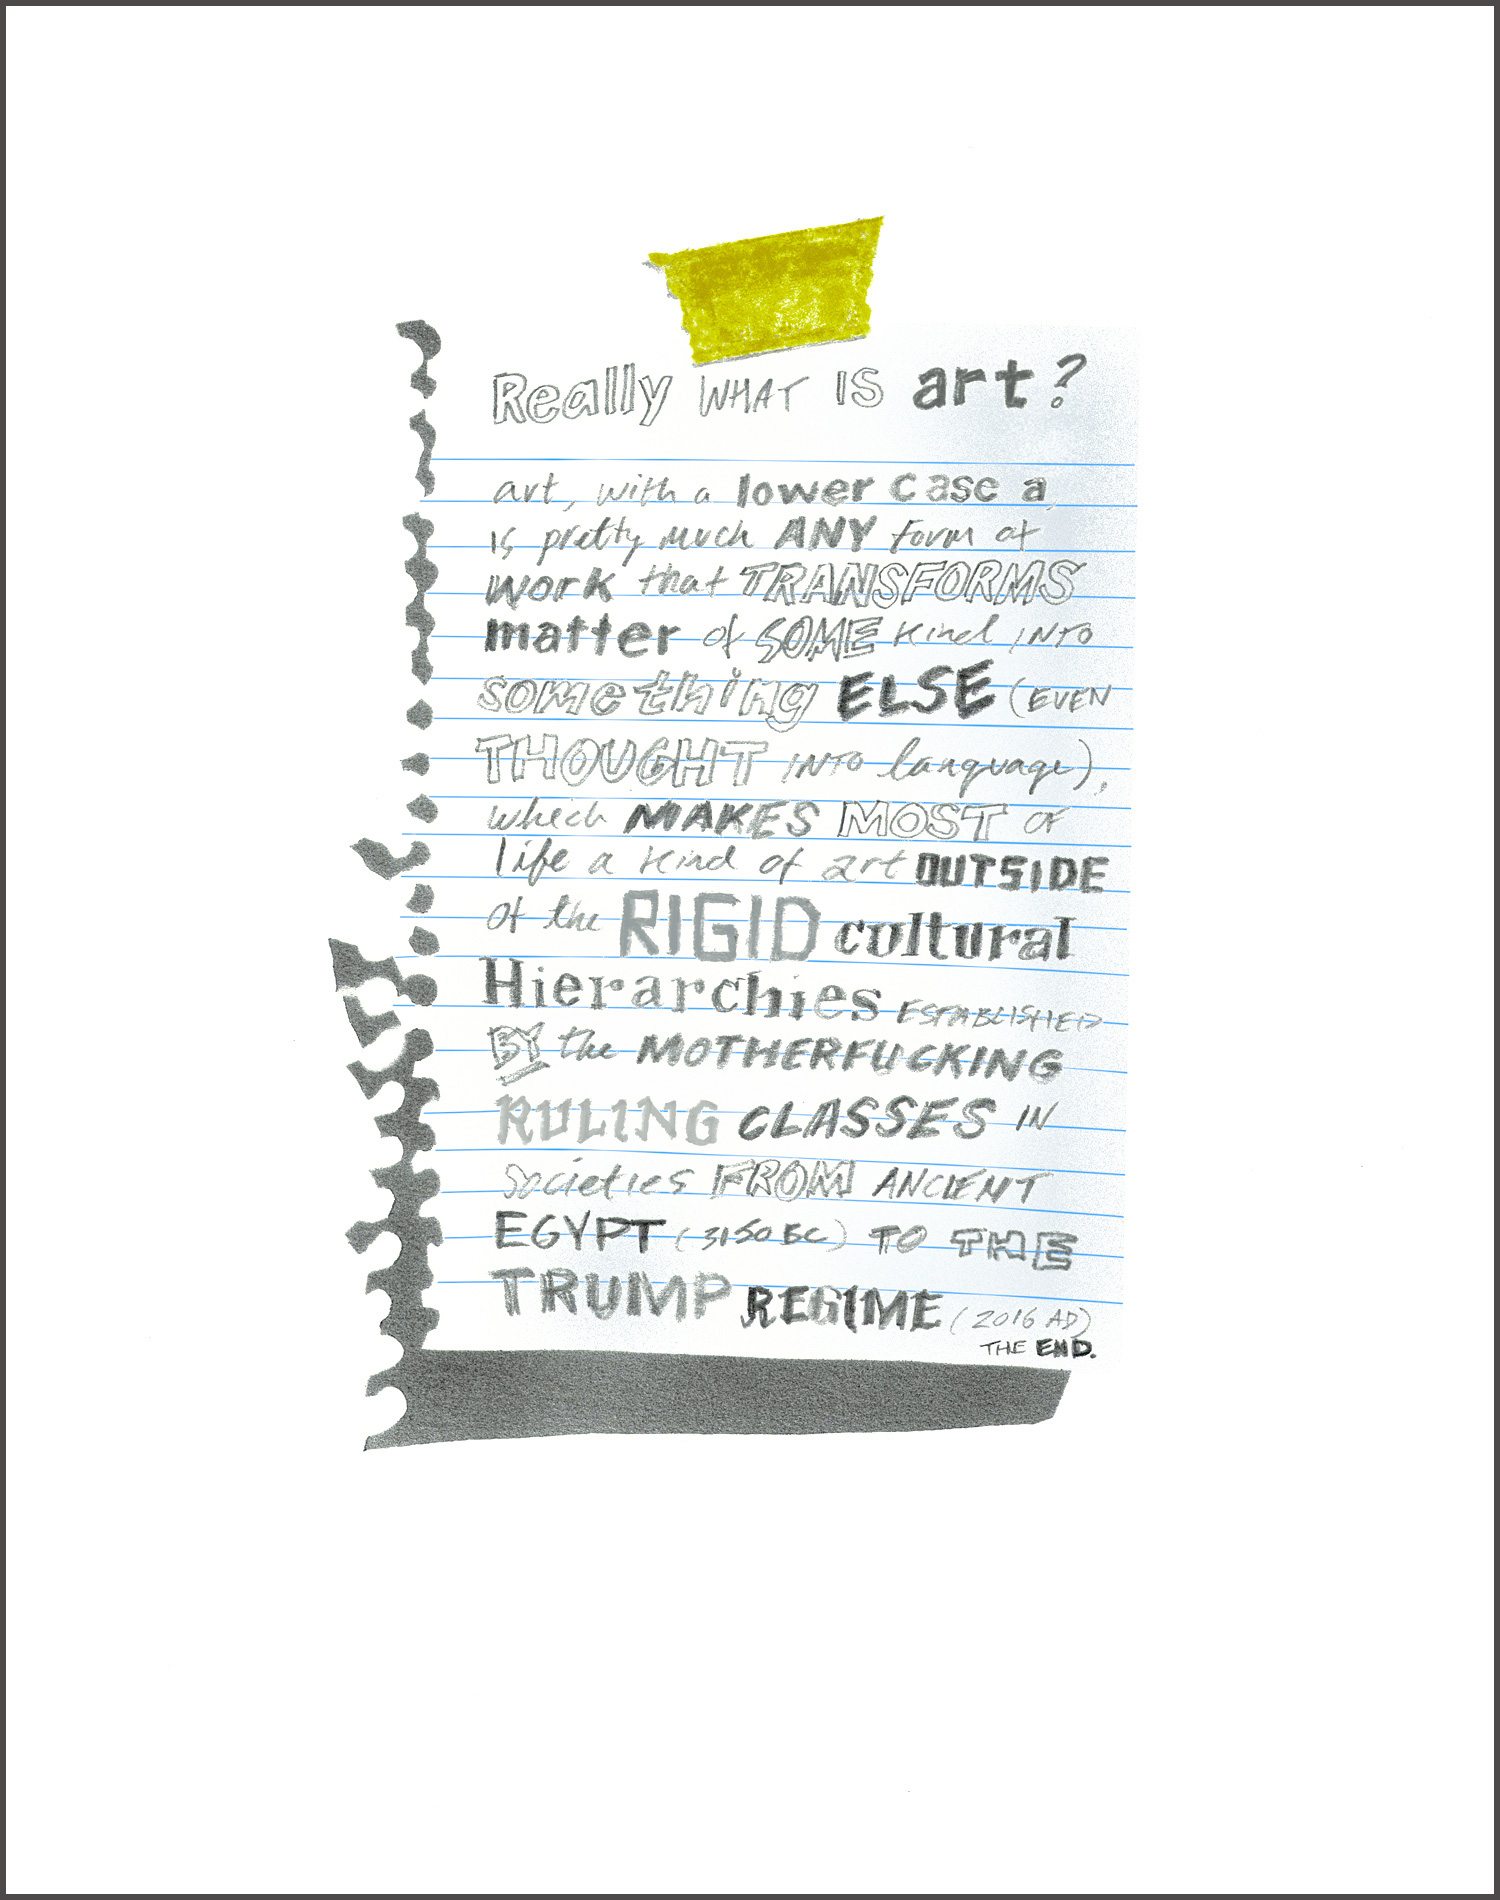 Really WHAT IS art?
art, with a lower case a,
is pretty much ANY form of
work that TRANSFORMS
matter of SOME kind INTO
something ELSE (EVEN
THOUGHT INTO language),
which MAKES MOST OF
life a kind of art OUTSIDE
of the RIGID cultural
Hierarchies ESTABLISHED
BY the MOTHERFUCKING
RULING CLASSES IN
societies FROM ANCIENT
EGYPT (3150 BC) TO THE
TRUMP REGIME (2016 AD)
THE END.